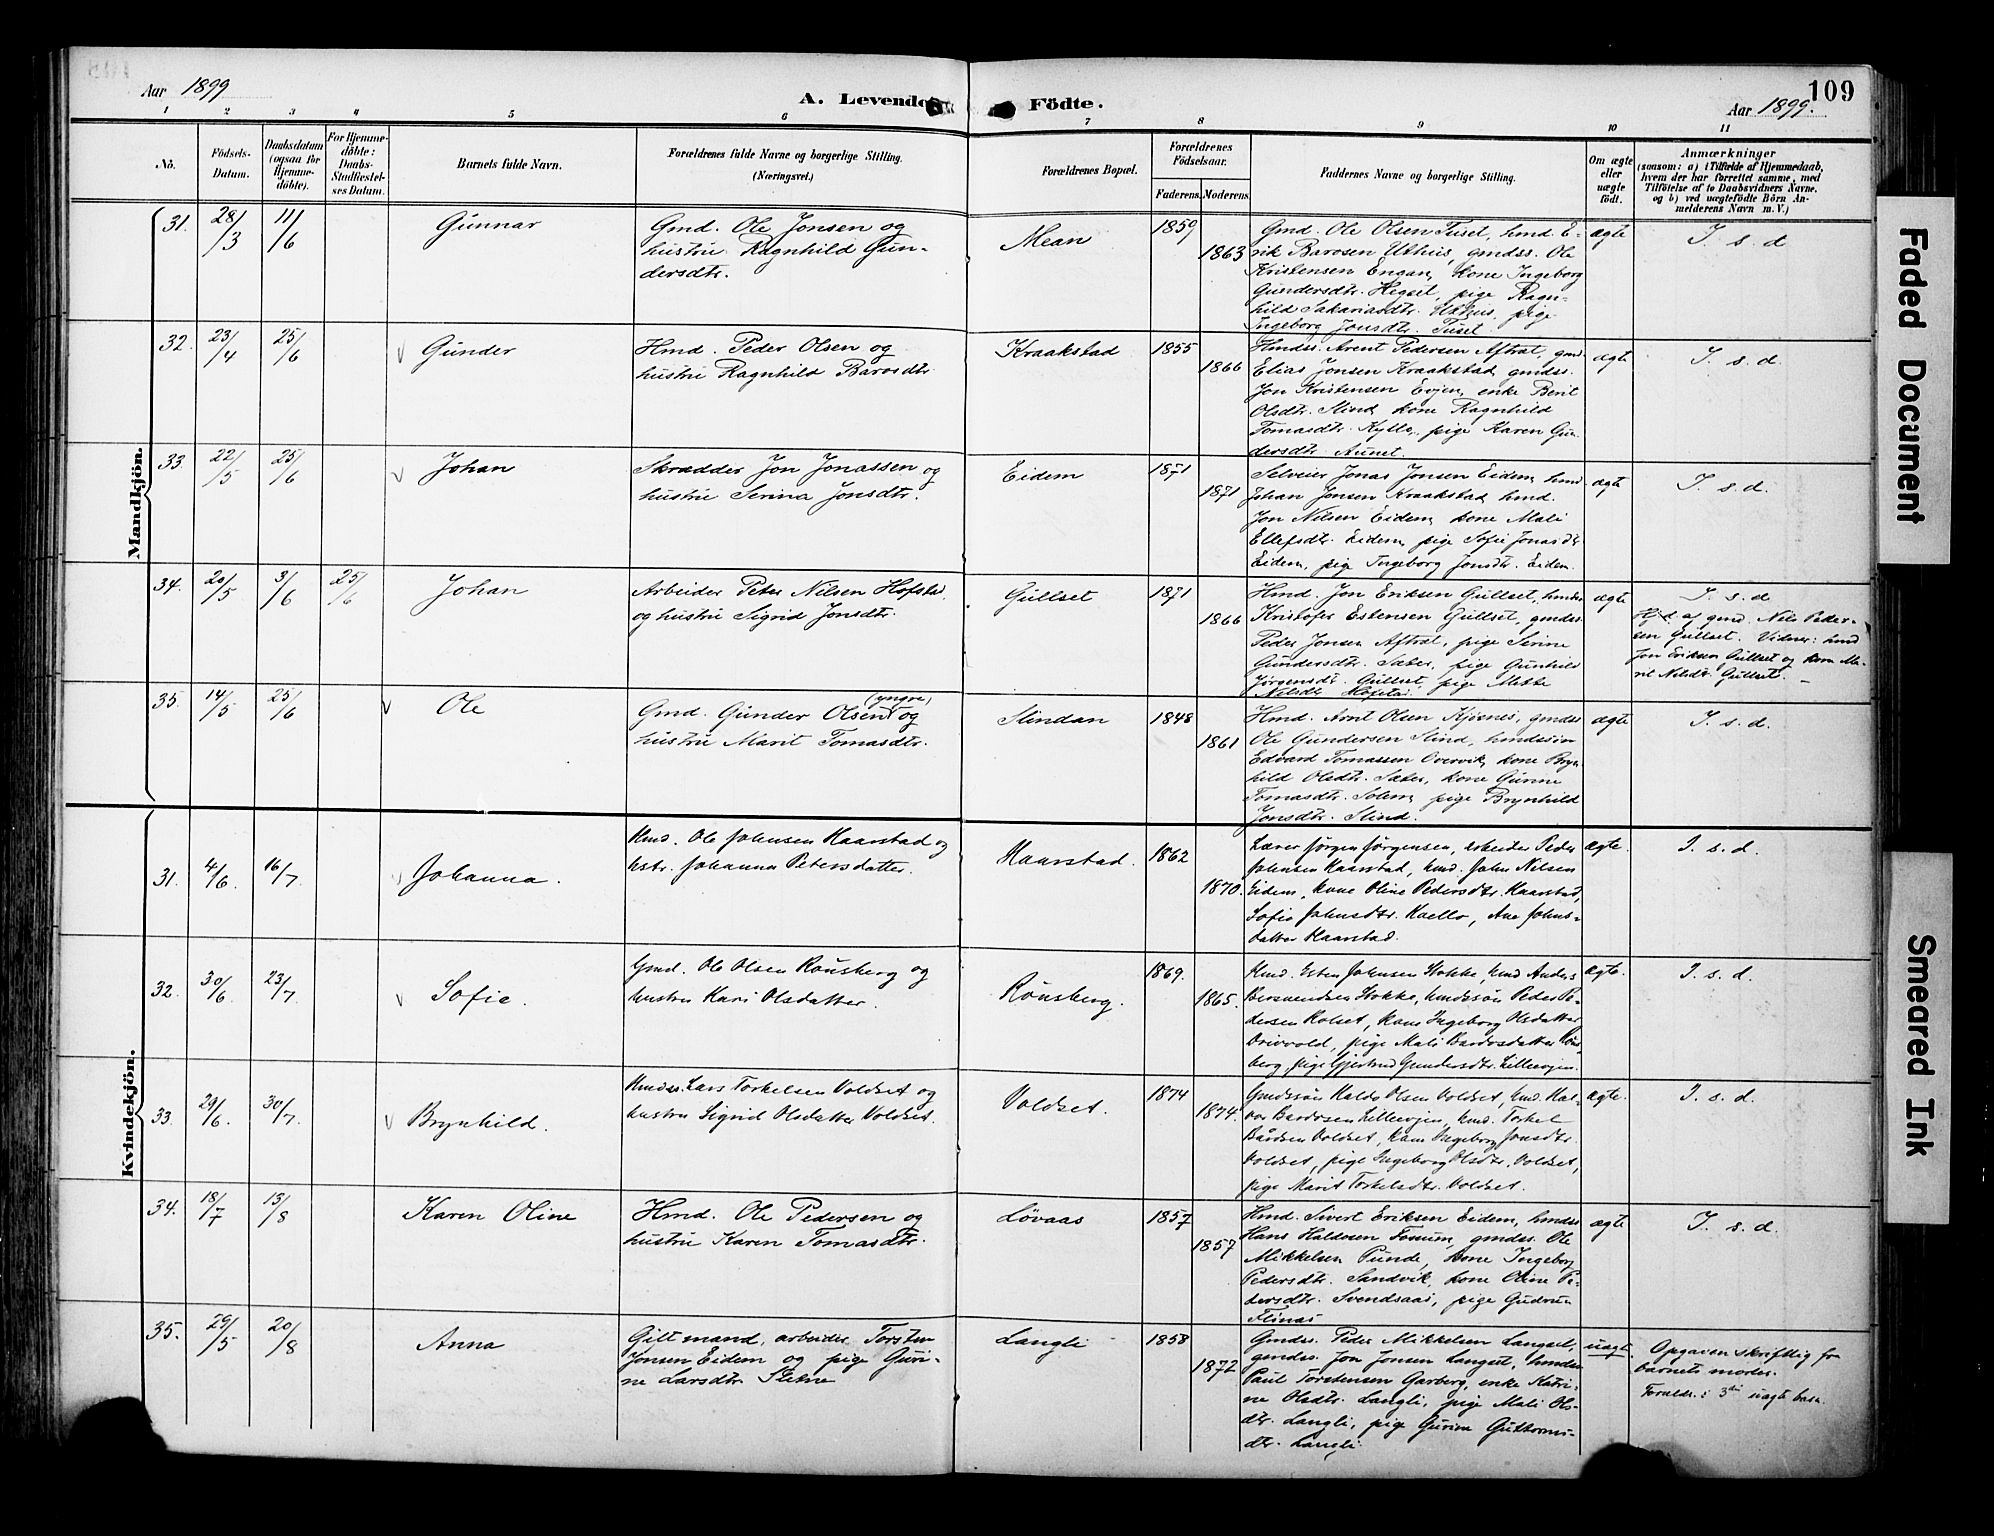 109
Aar 1899
A. Levende Födte.
Aar 1899.
1 2 3 4 5 6 7 8 9 10 11
No.
Födsels-Datum.
Daabsdatum (ogsaa for Hjemme-döbte).
For Hjemme-döbte: Daabs-Stadfæstel-ses Datum.
Barnets fulde Navn.
Forældrenes fulde Navne og borgerlige Stilling. (Næringsvei.)
Forældrenes Bopæl.
Forældrenes Födselsaar.
Faderens. Moderens.
Faddernes Navne og borgerlige Stilling.
Om ægte eller uægte födt.
Anmærkninger
(saasom: a) i Tilfælde af Hjemmedaab,
hvem der har forrettet samme, med
Tilföielse af to Daabsvidners Navne,
og b) ved uægtefödte Börn An-
melderens Navn m. V.)
Mandkjön.
31. 28/3 11/6 Gunnar
Gmd. Ole Jonsen og
hustru Ragnhild Gun-
dersdtr.
Mean 1859 1863
Gmd. Ole Olsen Tuset, hmd. E-
rik Barosen Uthus, gmdss. Ole
Kristensen Engan, kone Ingeborg
Gundersdtr. Hegset, pige Ragn-
hild Sakariasdtr. Uthus, pige
Ingeborg Jonsdtr. Tuset.
ægte I. s. d
32. 23/4 25/6 Gunder
Hmd. Peder Olsen og
hustru Ragnhild Barosdtr
Kraakstad 1855 1866
Hmdss. Arent Pedersen Aftret, gmd.
Elias Jonsen Kraakstad, gmdss.
Jon Kristensen Evjen, enke Berit
Olsdtr. Slind, kone Ragnhild
Tomasdtr. Kyllo, pige Karen Gun-
dersdtr. Aunet.
ægte I. s. d.
33. 22/5 25/6 Johan
Skrædder Jon Jonassen og
hustru Serina Jonsdtr.
Eidem 1871 1871
Selveier Jonas Jonsen Eidem, hmd.
Johan Jonsen Kraakstad, hmd.
Jon Nilsen Eidem, kone Mali
Ellefsdtr. Eidem, pige Sofie Jonasdtr
Eidem, pige Ingeborg Jonsdtr. Eidem.
ægte I. s. d.
34. 20/5 3/6 25/6 Johan
Arbeider Peter Nilsen Hofstad
og hustru Sigrid Jonsdtr.
Gullset 1871 1866
Hmd. Jon Eriksen Gullset, hmdss
Kristofer Estensen Gullset, gmdss.
Peder Jonsen Aftret, pige Serine
Gundersdtr. Sæter, pige Gunhild
Jørgensdt. Gullset, pige Mette
Nilsdt. Hofstad
ægte I. s. d
Hjd. af gmd. Nils Peder-
sen Gullset. Vidner: hmd
Jon Eriksen Gullset og kone Ma-
rit Nilsdt. Gullset.
35. 14/5 25/6 Ole
Gmd. Gunder Olsen (yngre) og
hustru Marit Tomasdtr.
Slindan 1848 1861
Hmd. Arnt Olsen Kjösnes, gmdss
Ole Gundersen Slind, hmdssøn
Edvard Tomassen Overvik, kone Bryn
hild Olsdtr. Sæter, kone Gurine
Tomasdtr. Solem, pige Brynhild
Jonsdtr. Slind.
ægte I. s. d.
Kvindekjön.
31. 4/6. 16/7. Johanna.
Hmd. Ole Johnsen Haarstad og
hstr. Johanna Petersdatter.
Haarstad. 1862 1870.
Lærer Jørgen Jørgensen, arbeider Peder
Johnsen Haarstad, hmd. John Nilsen
Eidem, kone Oline Pedersdtr. Haarstad,
Sofie Johnsdtr. Kaello, Ane Johns-
datter Haarstad.
ægte. I. s. d.
32. 30/6 23/7. Sofie.
Gmd. Ole Olsen Rönsberg og
hustru Kari Olsdatter.
Rönsberg. 1869. 1865.
Hmd. Esten Johnsen Stokke, hmd Anders
Bersvendsen Stokke, hmdssön Peder Pe-
dersen Kolset, kone Ingeborg Olsdatter
Drivvold, pige Mali Bardosdatter Röns
berg, pige Gjertrud Gundersdtr. Lilleevjen.
ægte. I. s. d.
33. 29/6. 30/7. Brynhild.
Hmdss. Lars Torkelsen Voldset og
hustru Sigrid Olsdatter Voldset.
Voldset. 1874 1874.
Gmdssön Haldo Olsen Voldset, hmd. Hal-
vor Bardosen Lilleevjen, hmd. Torkel
Bårdsen Voldset, kone Ingeborg Jonsdtr.
Voldset, pige Ingeborg Olsdtr. Voldset,
pige Marit Torkelsdtr. Voldset.
ægte. I. s. d.
34. 18/7 13/8 Karen Oline
Hmd. Ole Pedersen og
hustru Karen Tomasdtr.
Lövaas 1857 1857
Hmd. Sivert Eriksen Eidem, hmdss
Hans Haldosen Fossum, gmdss. Ole
Mikkelsen Punde, kone Ingeborg
Pedersdtr. Sandvik, kone Oline Pe-
dersdtr. Svendsaas, pige Gudrun
Flinas
ægte I. s. d.
35. 29/5 20/8 Anna
Gift mand, arbeider Torsten
Jonsen Eidem og pige Guri-
ne Larsdtr. Sletne
Langli 1858 1872
Gmdss. Peder Mikkelsen Langset,
gmdss. Jon Jonsen Langset, hmdss
Paul Torstensen Garberg, enke Katri-
ne Olsdtr. Langli, pige Mali Ols-
dtr. Langli, pige Gurine Guttorms-
dtr. Langli
uægt. Opgaven skriftlig fra
barnets moder.
Foræld.: 3die uægte barn.
Faded Document
Smeared Ink